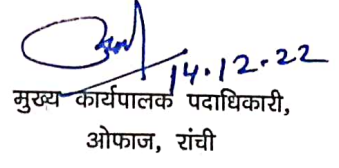 14.12.22
मुख्य कार्यपालक पदाधिकारी,
ओफाज, रांची